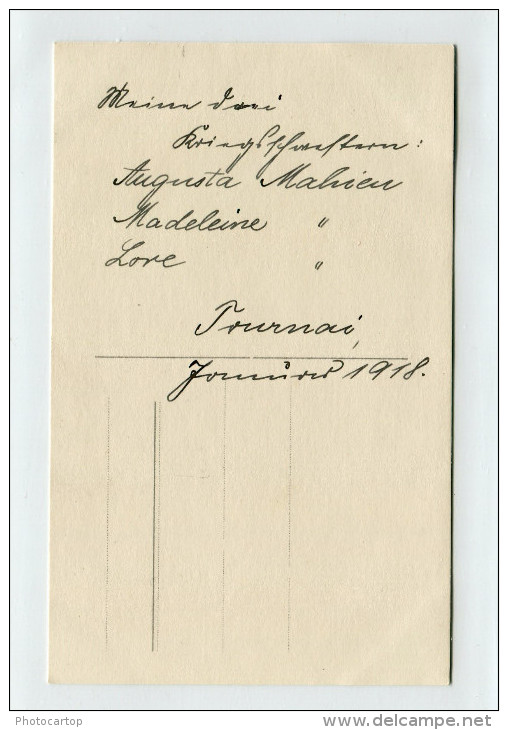 Meine drei
Kriegsschwestern:
Augusta Mahieu
Madeleine "
Lore "
Tournai,
Januar 1918.
Photocartop
www.delcampe.net